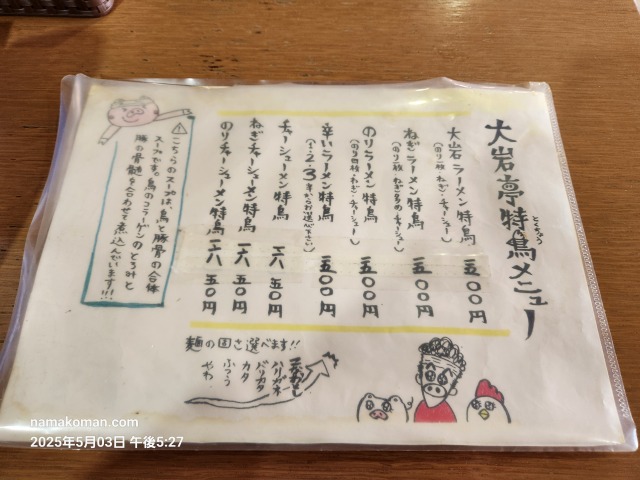 大岩亭特鳥メニュー
とくちょう
大岩ラーメン特鳥
(のり一枚・ねぎ・チャーシュー)
五〇〇円
ねぎラーメン特鳥
(のり一枚 ねぎ多め チャーシュー)
五〇〇円
のりラーメン特鳥
五〇〇円
辛いラーメン特鳥
五〇〇円
チャーシューメン特鳥
五〇円
ねぎチャーシューメン特鳥
五〇円
のりチャーシューメン特鳥
五〇円
⚠こちらのスープは、鳥と豚骨の合体
スープです。鳥のコラーゲンのとろみと
豚の骨髄を合わせて煮込
んでいます!!!
麺の固さ選べます!!
ハリガネ
バリカタ
カタ
ふつう
やわ
namakoman.com
2025年5月03日 午後5:27